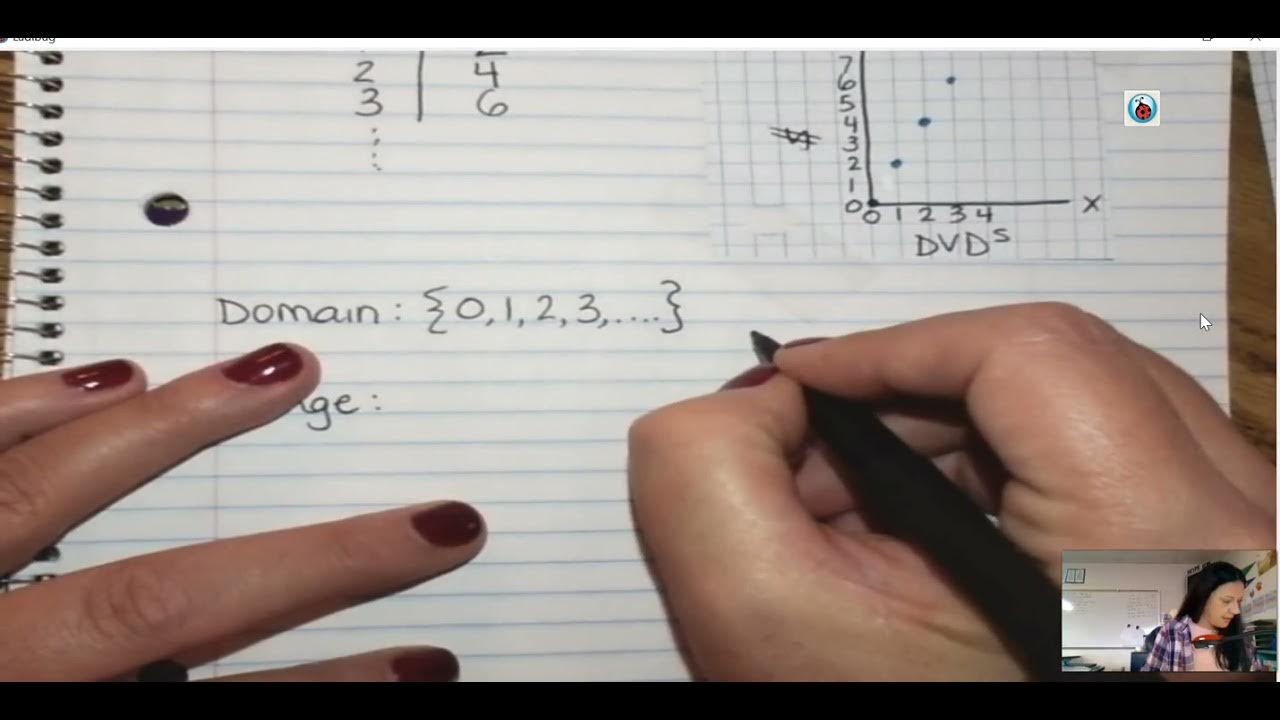 Ladibug
2 4
3 6
7
6
5
4
3
2
1
0
0 1 2 3 4 X
DVDs
Domain: {0,1,2,3,....}